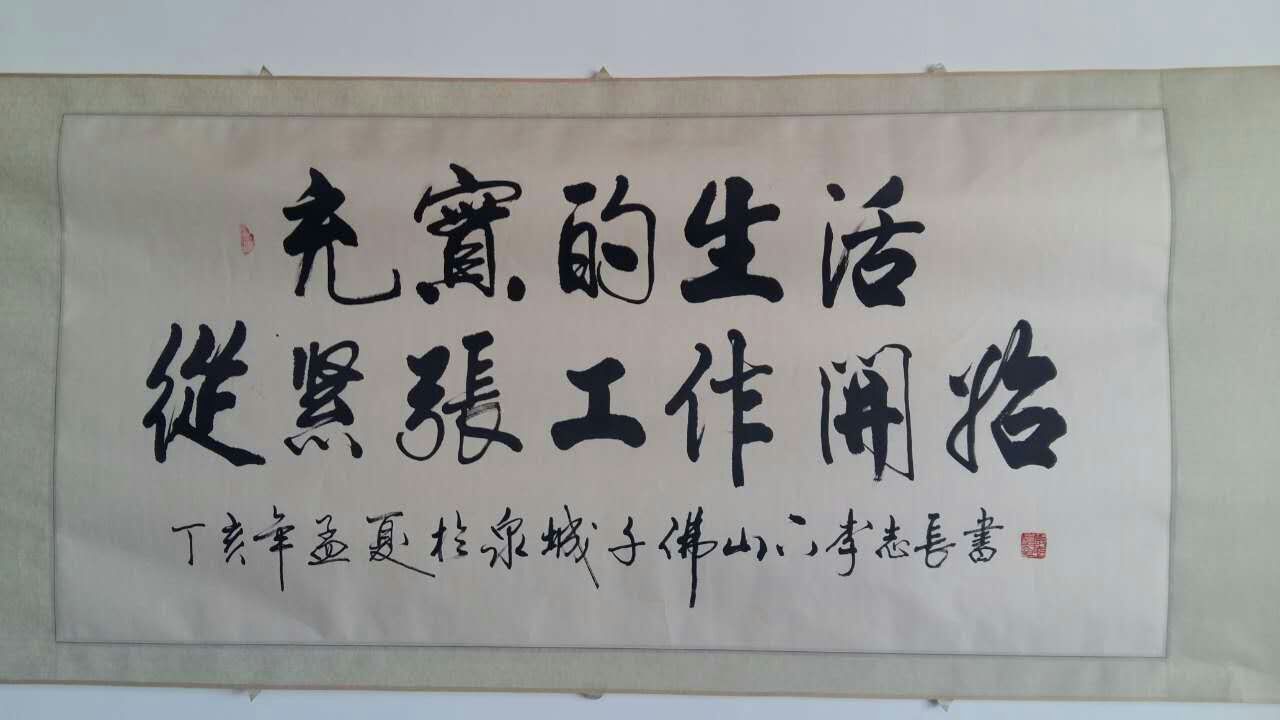 充實的生活
從緊張工作開始
丁亥年孟夏於泉城千佛山下李志長書